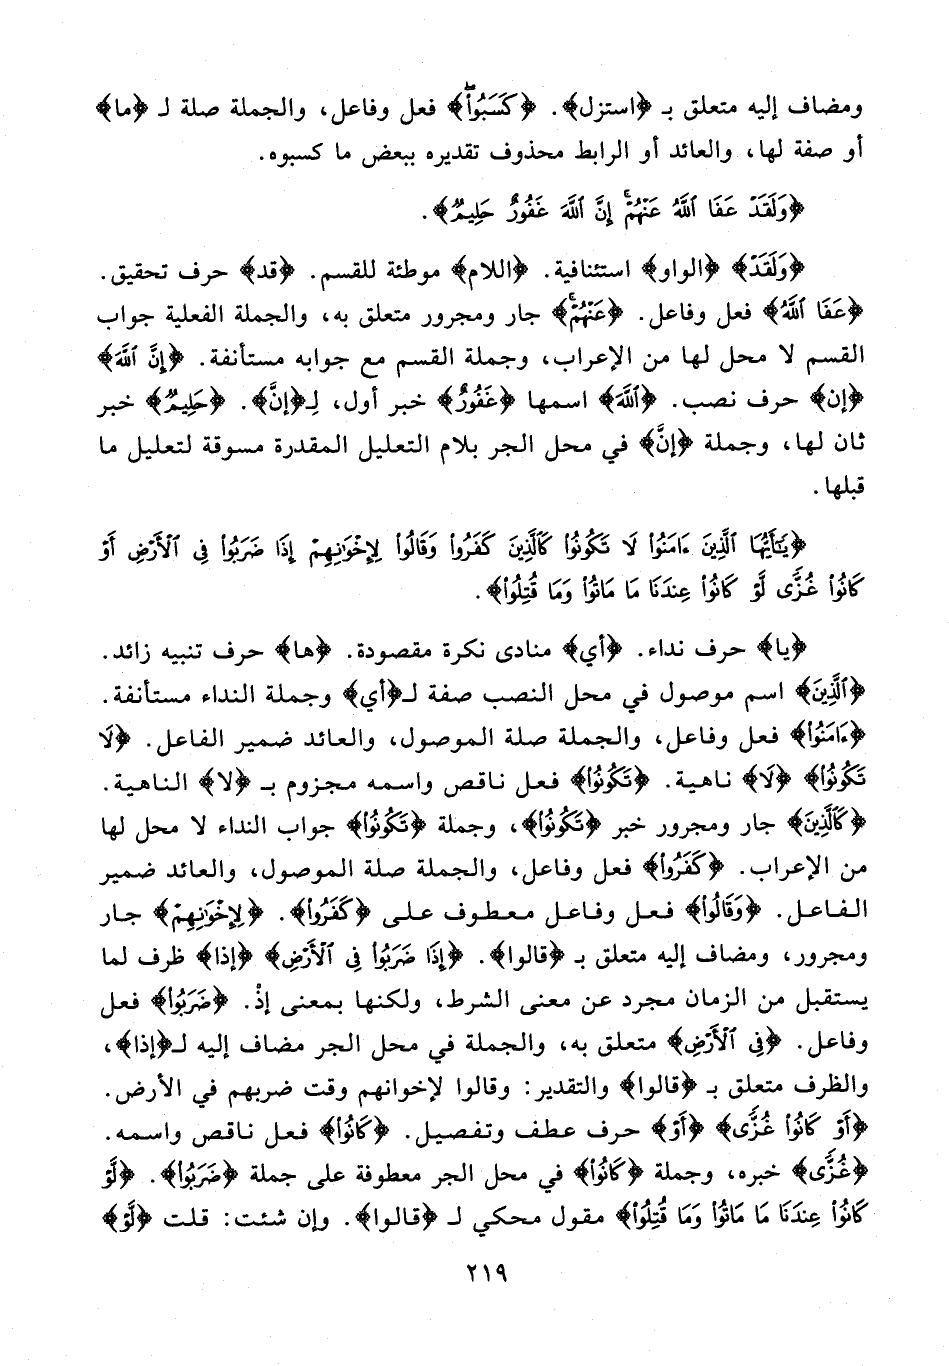 ومضاف إليه متعلق بـ ﴿استزل﴾. ﴿كَسَبُواْ﴾ فعل وفاعل، والجملة صلة لـ ﴿ما﴾
أو صفة لها، والعائد أو الرابط محذوف تقديره ببعض ما كسبوه.
﴿وَلَقَدْ عَفَا ٱللَّهُ عَنْهُمْۚ إِنَّ ٱللَّهَ غَفُورٌ حَلِيمٌ﴾.
﴿وَلَقَدْ﴾ ﴿الواو﴾ استئنافية. ﴿اللام﴾ موطئة للقسم. ﴿قد﴾ حرف تحقيق.
﴿عَفَا ٱللَّهُ﴾ فعل وفاعل. ﴿عَنْهُمْۚ﴾ جار ومجرور متعلق به، والجملة الفعلية جواب
القسم لا محل لها من الإعراب، وجملة القسم مع جوابه مستأنفة. ﴿إِنَّ ٱللَّهَ﴾
﴿إن﴾ حرف نصب. ﴿ٱللَّهَ﴾ اسمها ﴿غَفُورٌ﴾ خبر أول، لِـ﴿إنَّ﴾. ﴿حَلِيمٌ﴾ خبر
ثان لها، وجملة ﴿إنَّ﴾ في محل الجر بلام التعليل المقدرة مسوقة لتعليل ما
قبلها.
﴿يَٰٓأَيُّهَا ٱلَّذِينَ ءَامَنُواْ لَا تَكُونُواْ كَٱلَّذِينَ كَفَرُواْ وَقَالُواْ لِإِخْوَٰنِهِمْ إِذَا ضَرَبُواْ فِى ٱلْأَرْضِ أَوْ
كَانُواْ غُزًّى لَّوْ كَانُواْ عِندَنَا مَا مَاتُواْ وَمَا قُتِلُواْ﴾.
﴿يا﴾ حرف نداء. ﴿أي﴾ منادى نكرة مقصودة. ﴿ها﴾ حرف تنبيه زائد.
﴿ٱلَّذِينَ﴾ اسم موصول في محل النصب صفة لـ﴿أي﴾ وجملة النداء مستأنفة.
﴿ءَامَنُواْ﴾ فعل وفاعل، والجملة صلة الموصول، والعائد ضمير الفاعل. ﴿لَا
تَكُونُواْ﴾ ﴿لَا﴾ ناهية. ﴿تَكُونُواْ﴾ فعل ناقص واسمه مجزوم بـ ﴿لا﴾ الناهية.
﴿كَٱلَّذِينَ﴾ جار ومجرور خبر ﴿تَكُونُواْ﴾، وجملة ﴿تَكُونُواْ﴾ جواب النداء لا محل لها
من الإعراب. ﴿كَفَرُواْ﴾ فعل وفاعل، والجملة صلة الموصول، والعائد ضمير
الفاعل. ﴿وَقَالُواْ﴾ فعل وفاعل معطوف على ﴿كَفَرُواْ﴾. ﴿لِإِخْوَٰنِهِمْ﴾ جار
ومجرور، ومضاف إليه متعلق بـ ﴿قالوا﴾. ﴿إِذَا ضَرَبُواْ فِى ٱلْأَرْضِ﴾ ﴿إذا﴾ ظرف لما
يستقبل من الزمان مجرد عن معنى الشرط، ولكنها بمعنى إذْ. ﴿ضَرَبُواْ﴾ فعل
وفاعل. ﴿فِى ٱلْأَرْضِ﴾ متعلق به، والجملة في محل الجر مضاف إليه لـ﴿إذا﴾،
والظرف متعلق بـ ﴿قالوا﴾ والتقدير: وقالوا لإخوانهم وقت ضربهم في الأرض.
﴿أَوْ كَانُواْ غُزًّى﴾ ﴿أَوْ﴾ حرف عطف وتفصيل. ﴿كَانُواْ﴾ فعل ناقص واسمه.
﴿غُزًّى﴾ خبره، وجملة ﴿كَانُواْ﴾ في محل الجر معطوفة على جملة ﴿ضَرَبُواْ﴾. ﴿لَّوْ
كَانُواْ عِندَنَا مَا مَاتُواْ وَمَا قُتِلُواْ﴾ مقول محكي لـ ﴿قالوا﴾. وإن شئت: قلت ﴿لَّوْ﴾
٢١٩